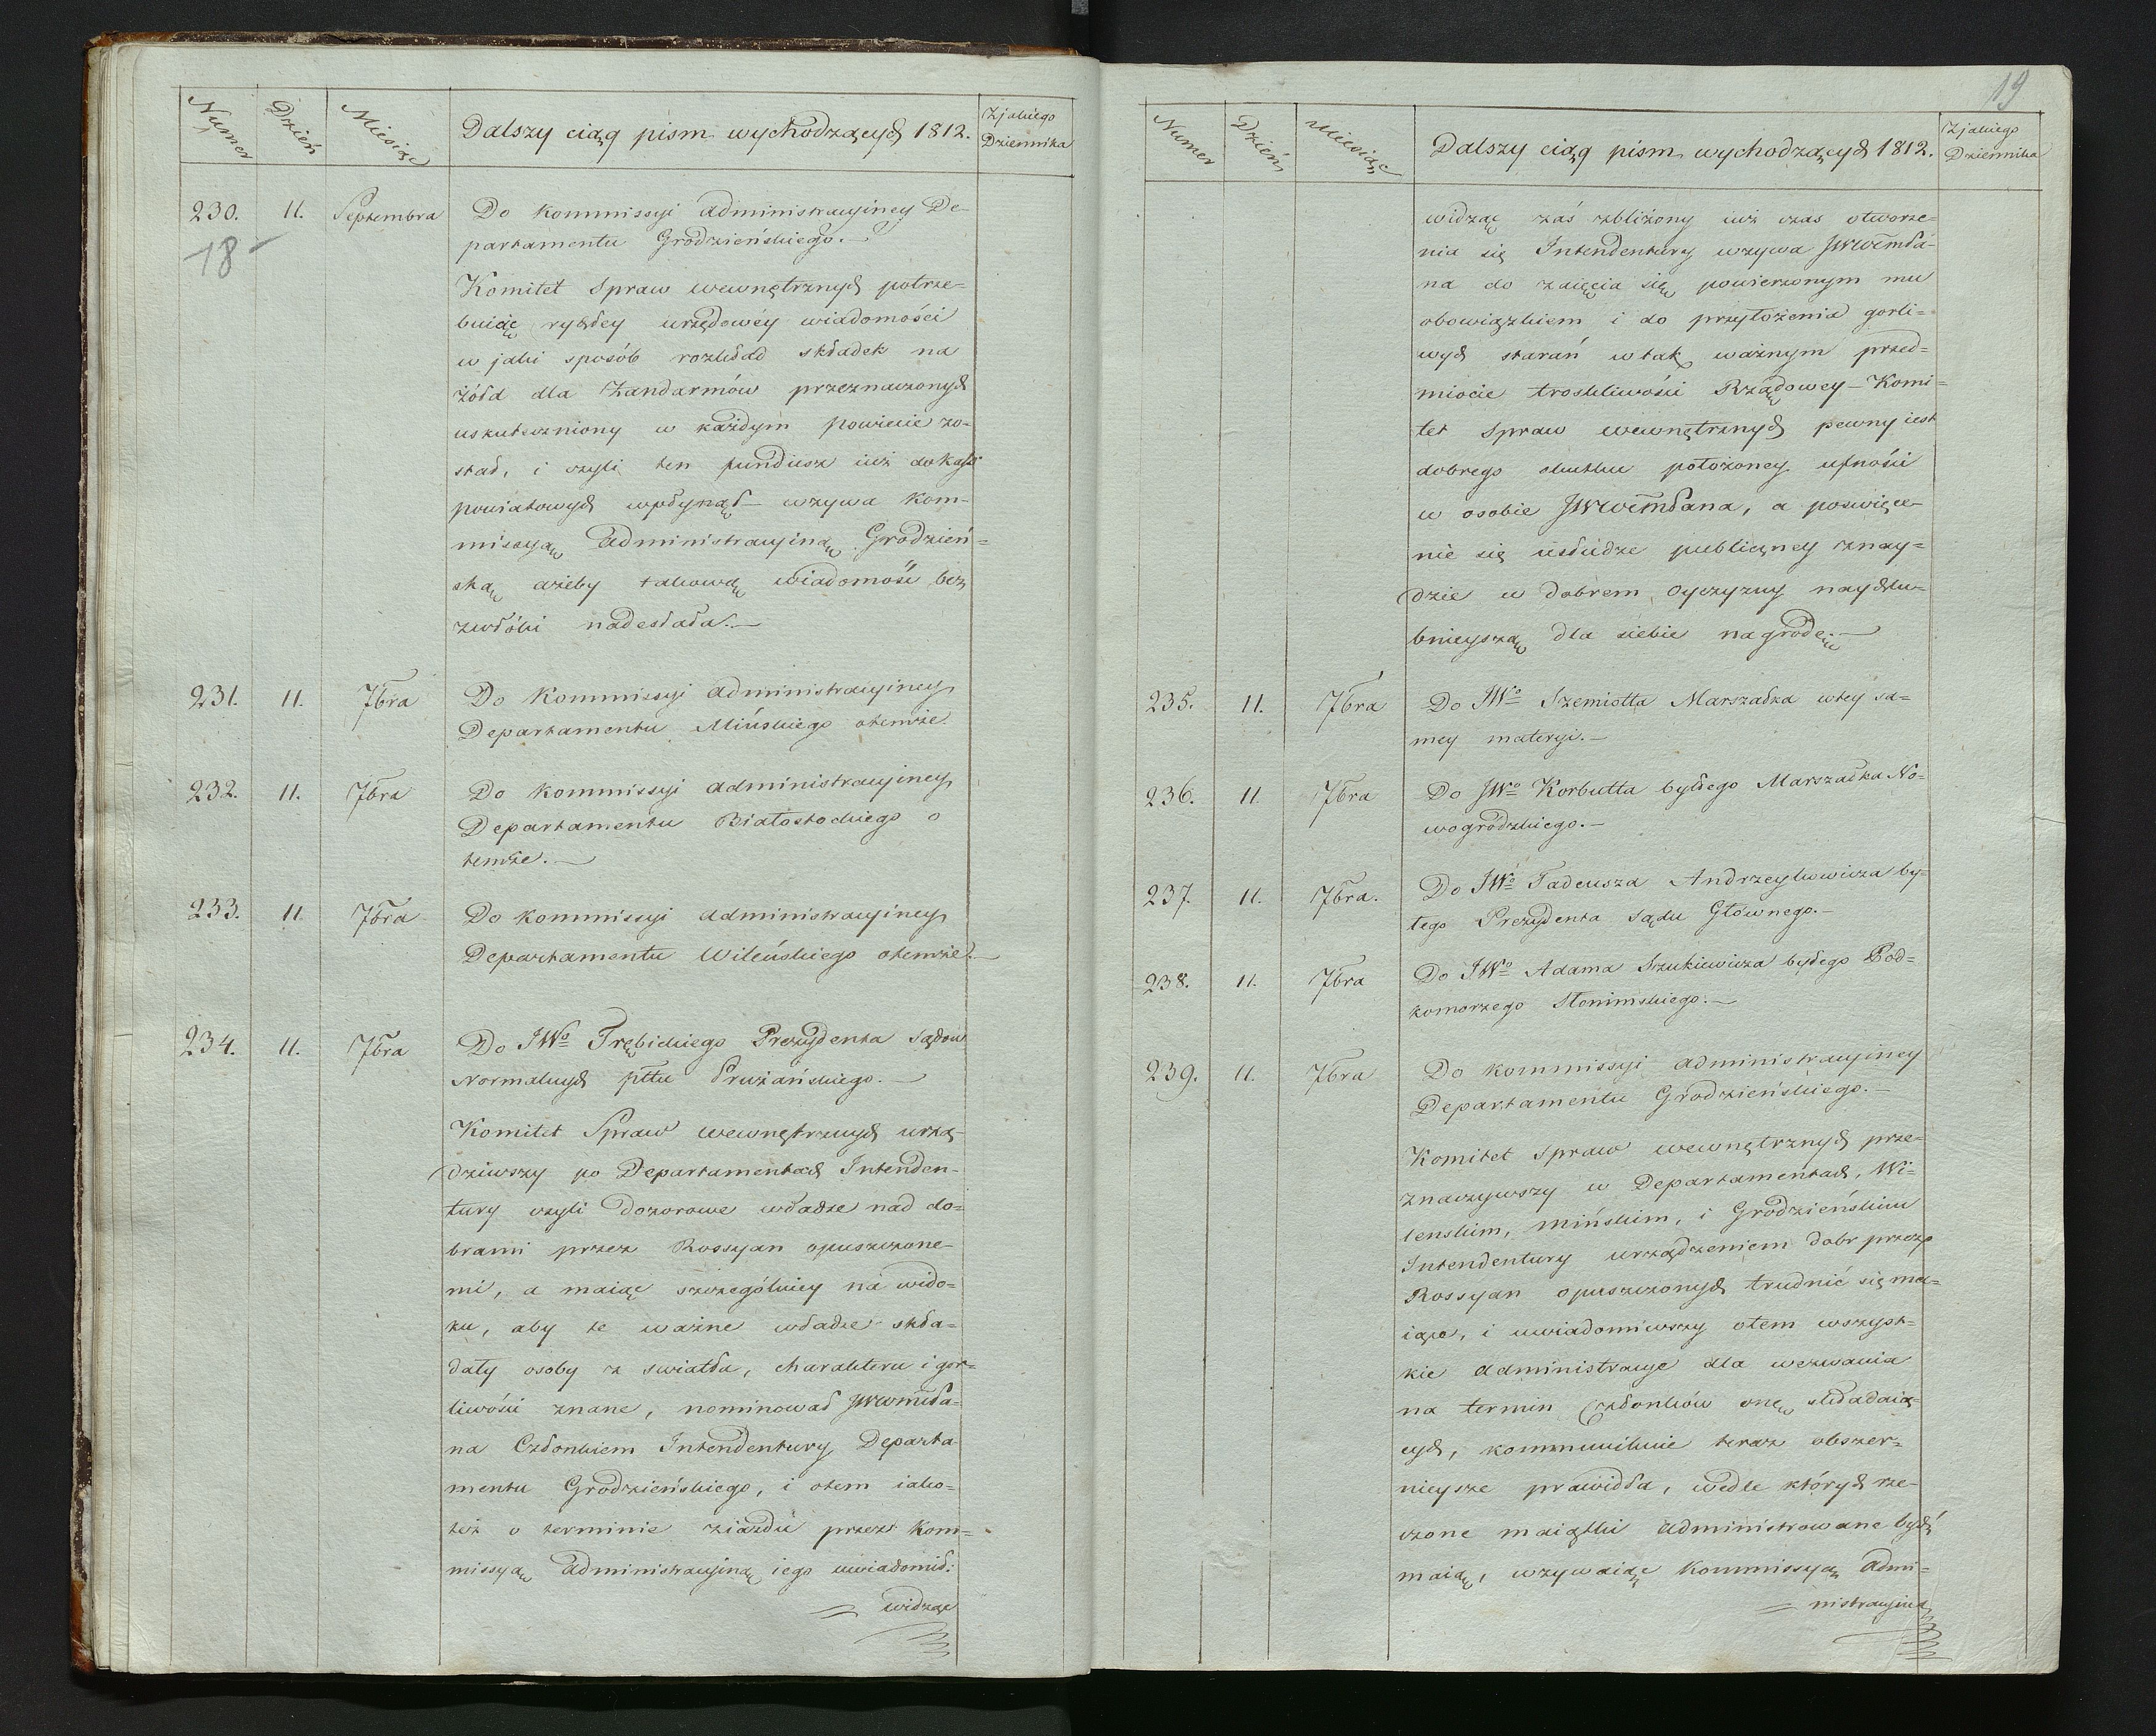 Numer Dzień Miesiąc Dalszy ciąg pism wychodzących 1812. Z jakiego Dziennika
230. 11. Septembra Do Kommissyi Administracyiney De-
18
partamentu Grodzieńskiego.—
Komitet Spraw wewnętrznych potrze-
buiąc rychłey urzędowéy wiadomości
w jaki sposób rozkład składek na
żółd dla Żandarmów przeznaczonych
uskuteczniony w każdym powiecie zo-
stał, i czyli ten fundusz iuż do kass
powiatowych wpłynął— wzywa Kom-
missyą Administracyiną Grodzień=
ską ażeby takową wiadomość bez
zwłóki nadesłała.—
231. 11. 7bra Do Kommissyi Administracyiney
Departamentu Mińskiego otemże.
232. 11. 7bra Do Kommissyi administracyiney
Departamentu Białostockiego o
temże.—
233. 11 7bra Do Kommissyi Administracyiney
Departamentu Wileńskiego otemże.—
234. 11. 7bra Do JWo Trębickiego Prezydenta Sądow
Normalnych pttu Prużańskiego.—
Komitet Spraw wewnętrznych urzą-
dziwszy po Departamentach Intenden-
tury czyli dozorowe władze nad do=
brami przez Rossyan opuszczone-
mi, a maiąc szczególniey na wido-
ku, aby te ważne władze skła=
dały osoby z swiatła, charakteru i gor=
liwości znane, nominował JWWmśła-
na Członkiem Intendentury Departa-
mentu Grodzieńskiego, i otem iako-
też o terminie ziazdu przez Kom=
missyą Administracyiną iego uwiadomił:
= widząc
19
Numer Dzień Miesiąc Dalszy ciąg pism wychodzących 1812. Z jakiego Dziennika
widząc zaś zbliżony iuż czas otworze-
nia się Intendentury wzywa JWWmśła-
na do zaięcia się powierzonym mu
obowiązkiem i do przyłożenia gorli=
wych starań wtak ważnym przed=
miocie troskliwości Rządowey— Komi=
tet Spraw wewnętrznych pewny iest
dobrego skutku położoney ufności
w osobie JWWmśłana, a poswięce-
nie się usłudze publiczney znay=
dzie w dobrem Oyczyzny naychlu-
bnieyszą dla siebie nagrodę.—
235. 11. 7bra Do JWo Szemiotta Marszałka wtey sa=
mey materyi.—
236. 11 7bra Do JWo Korbutta byłego Marszałka No=
wogrodzkiego.—
237. 11. 7bra. Do JWo Tadeusza Andrzeykowicza by-
łego Prezydenta Sądu Głównego.—
238. 11. 7bra Do JWo Adama Szukiewicza byłego Pod=
komorzego Słonimskiego.—
239. 11. 7bra Do Kommissyi administracyiney
Departamentu Grodzieńskiego.—
Komitet Spraw wewnętrznych prze-
znaczywszy w Departamentach, Wi-
lenskim, Mińskim, i Grodzieńskim
Intendentury urządzeniem dobr przez
Rossyan opuszczonych trudnić się ma=
iące, i uwiadomiwszy otem wszyst=
kie Administracye dla wezwania
na termin Członków onę składaią-
cych, kommunikuie teraz obszer=
nieysze prawidła, wedle których rze-
czone maiątki administrowane bydź
maią, wzywaiąc Kommissyą Admi=
= nistracyiną